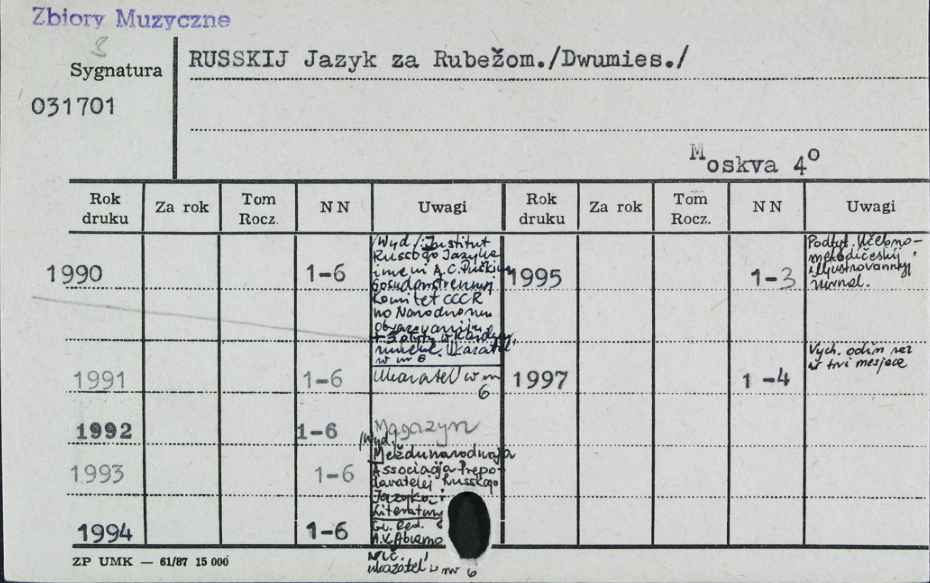 Zbiory Muzyczne
Sygnatura
031701
RUSSKIJ Jazyk za Rubežom./Dwumies./
Moskva 4º
Rok druku Za rok Tom Rocz. N N Uwagi Rok druku Za rok Tom Rocz. N N Uwagi
1990 1-6
/Wyd./: Institut
Russkogo Jazyka
imeni A.C. Puškina
Gosudarstvennyj
Komitet CCCR
no Narodnomu
+ 3 płyty w każdym
numerze. Ukazatel
w nr 6
1995 1-3
Podtyt. Učebno-
metodičeskij
illjustrovannyj
žurnal.
1991 1-6
Ukazatel w nr
6
1997 1-4
Vych. odin raz
w tri mesjaca
1992 1-6
Magazyn
/Wyd./
Meždunarodnaja
Associacija Prepo-
davatelej Russkogo
Jazyka i
Literatury
1993 1-6
1994 1-6
Gl. Red.
ukazatel w nr 6
ZP UMK — 61/87 15 000